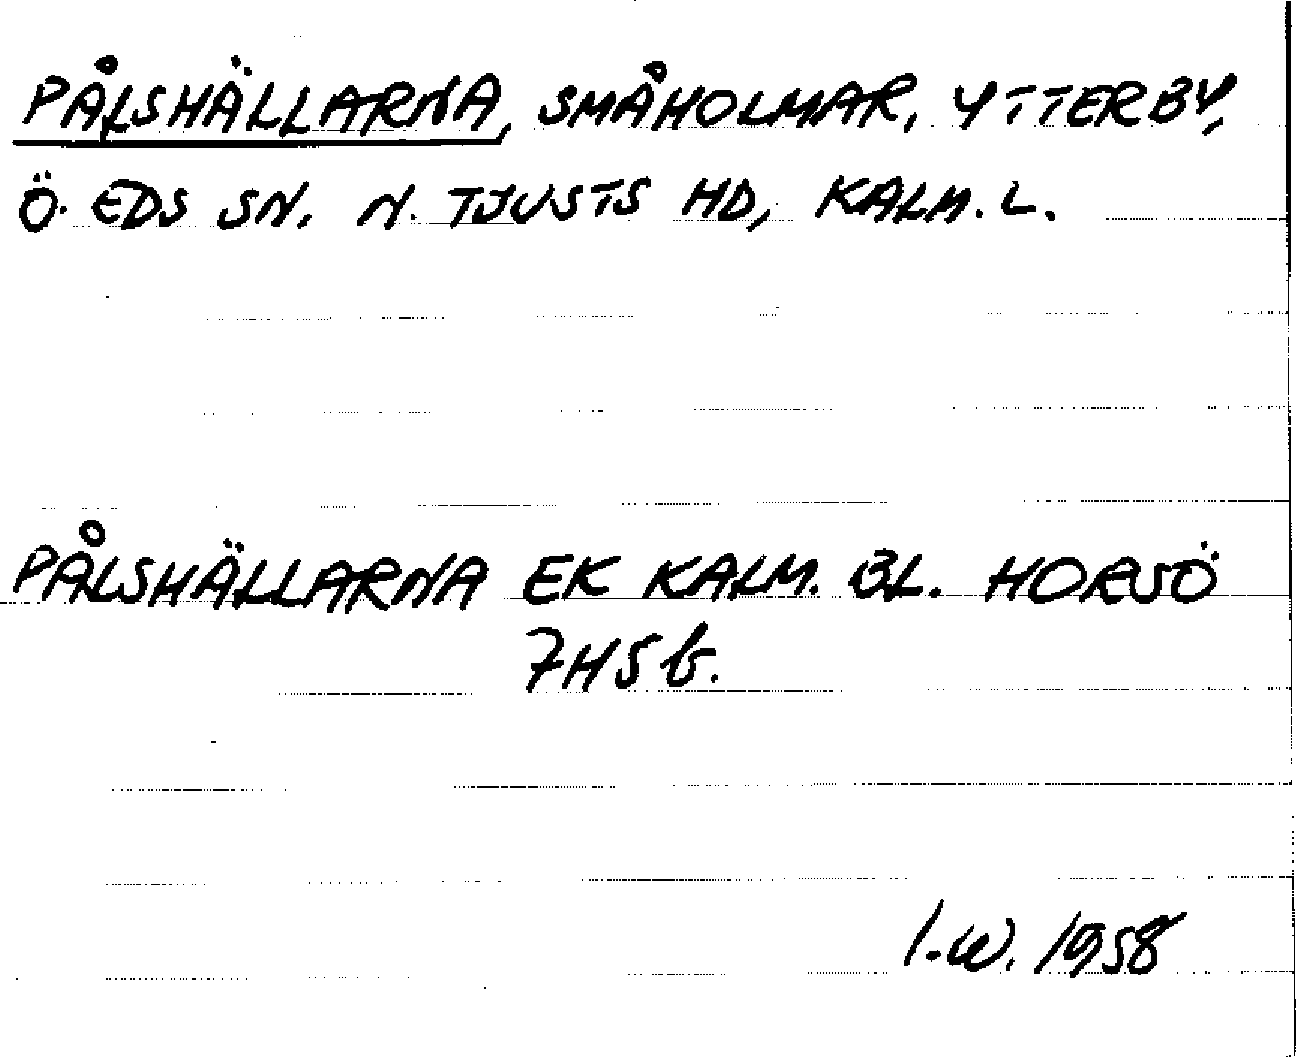 PÅLSHÄLLARNA, SMÅHOLMAR, YTTERBY,
Ö. EDS SN. N. TJUSTS HD, KALM. L.
PÅLSHÄLLARNA EK KALM. BL. HORSÖ
7H5b.
I.W. 1958